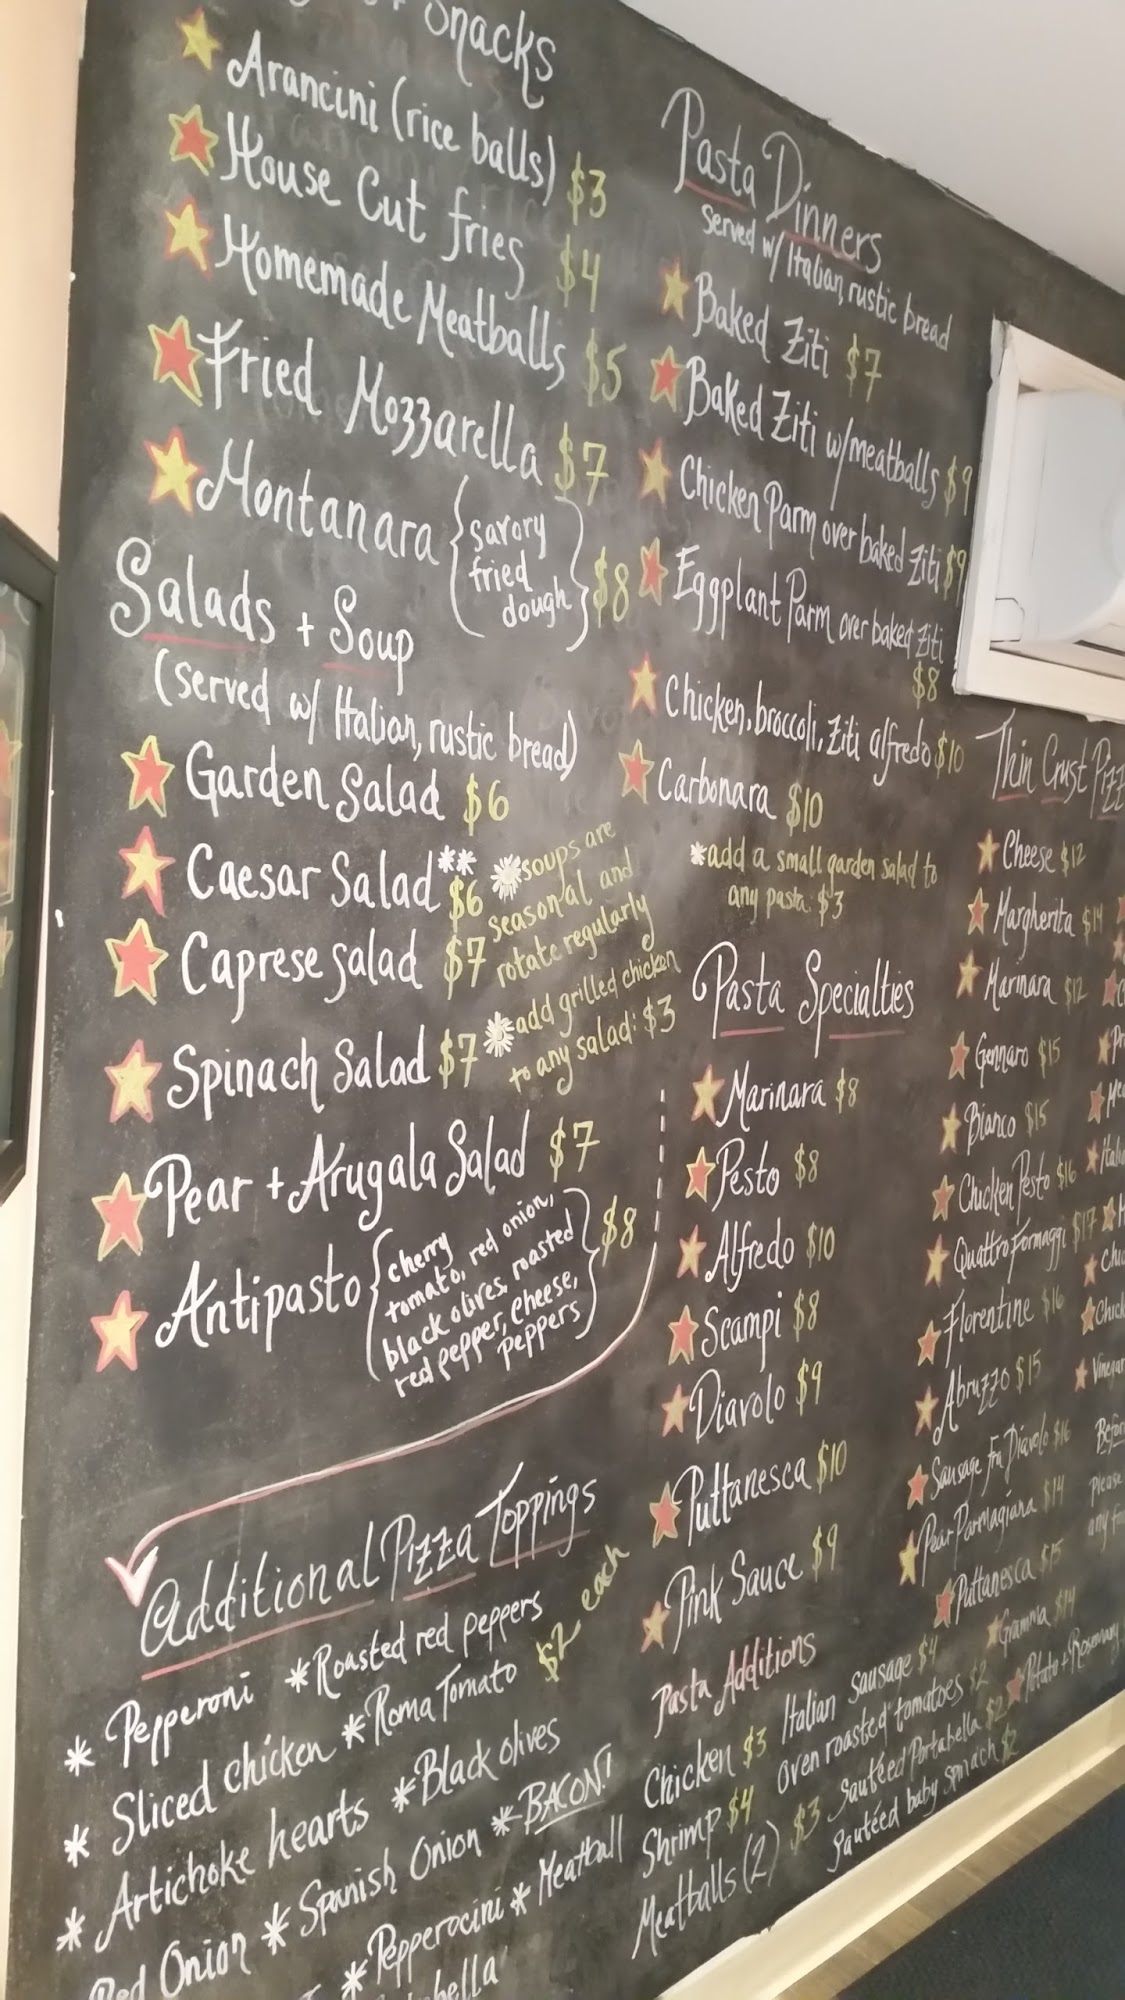 Snacks
Arancini (rice balls) $3
House Cut fries $4
Homemade Meatballs $5
Fried Mozzarella $7
Montanara {savory
fried
dough} $8
Salads + Soup
(served w/ Italian, rustic bread)
Garden Salad $6
Caesar Salad** $6
Caprese Salad $7
Spinach Salad $7
Pear + Arugala Salad $7
Antipasto {cherry
tomato, red onion,
black olives, roasted
red pepper, cheese,
peppers} $8
*soups are
seasonal and
rotate regularly
*add grilled chicken
to any salad: $3
Additional Pizza Toppings
$2 each
* Pepperoni * Roasted red peppers
* Sliced chicken * Roma Tomato
* Artichoke hearts * Black olives
Red Onion * Spanish Onion * BACON!
* Pepperocini * Meatball
Pasta Dinners
served w/ Italian, rustic bread
Baked Ziti $7
Baked Ziti w/meatballs $9
Chicken Parm over baked Ziti $9
Eggplant Parm over baked Ziti
$8
Chicken, broccoli, Ziti alfredo $10
Carbonara $10
*add a small garden salad to
any pasta: $3
Pasta Specialties
Marinara $8
Pesto $8
Alfredo $10
Scampi $8
Diavolo $9
Puttanesca $10
Pink Sauce $9
Pasta Additions
Chicken $3
Shrimp $4
Meatballs (2) $3
Italian Sausage $4
oven roasted tomatoes $2
Sautéed Portabella $2
Sautéed baby spinach $2
Thin Crust
Cheese $12
Margherita $14
Marinara $12
Gennaro $15
Bianco $15
Chicken Pesto $16
Quattro Formaggi $17
Florentine $16
Abruzzo $15
Sausage Fra Diavolo $16
Pear Parmagiana $14
Puttanesca $15
Gramma $14
Potato + Rosemary
Please